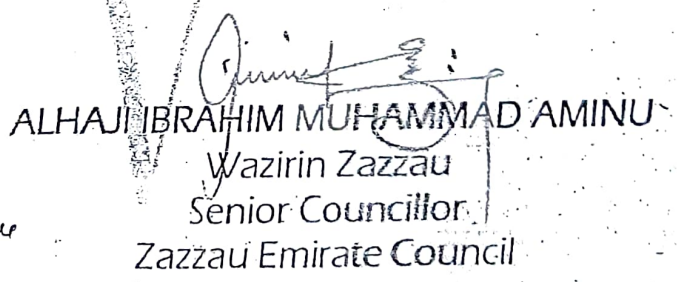 ALHAJI IBRAHIM MUHAMMAD AMINU
Wazirin Zazzau
Senior Councillor
Zazzau Emirate Council